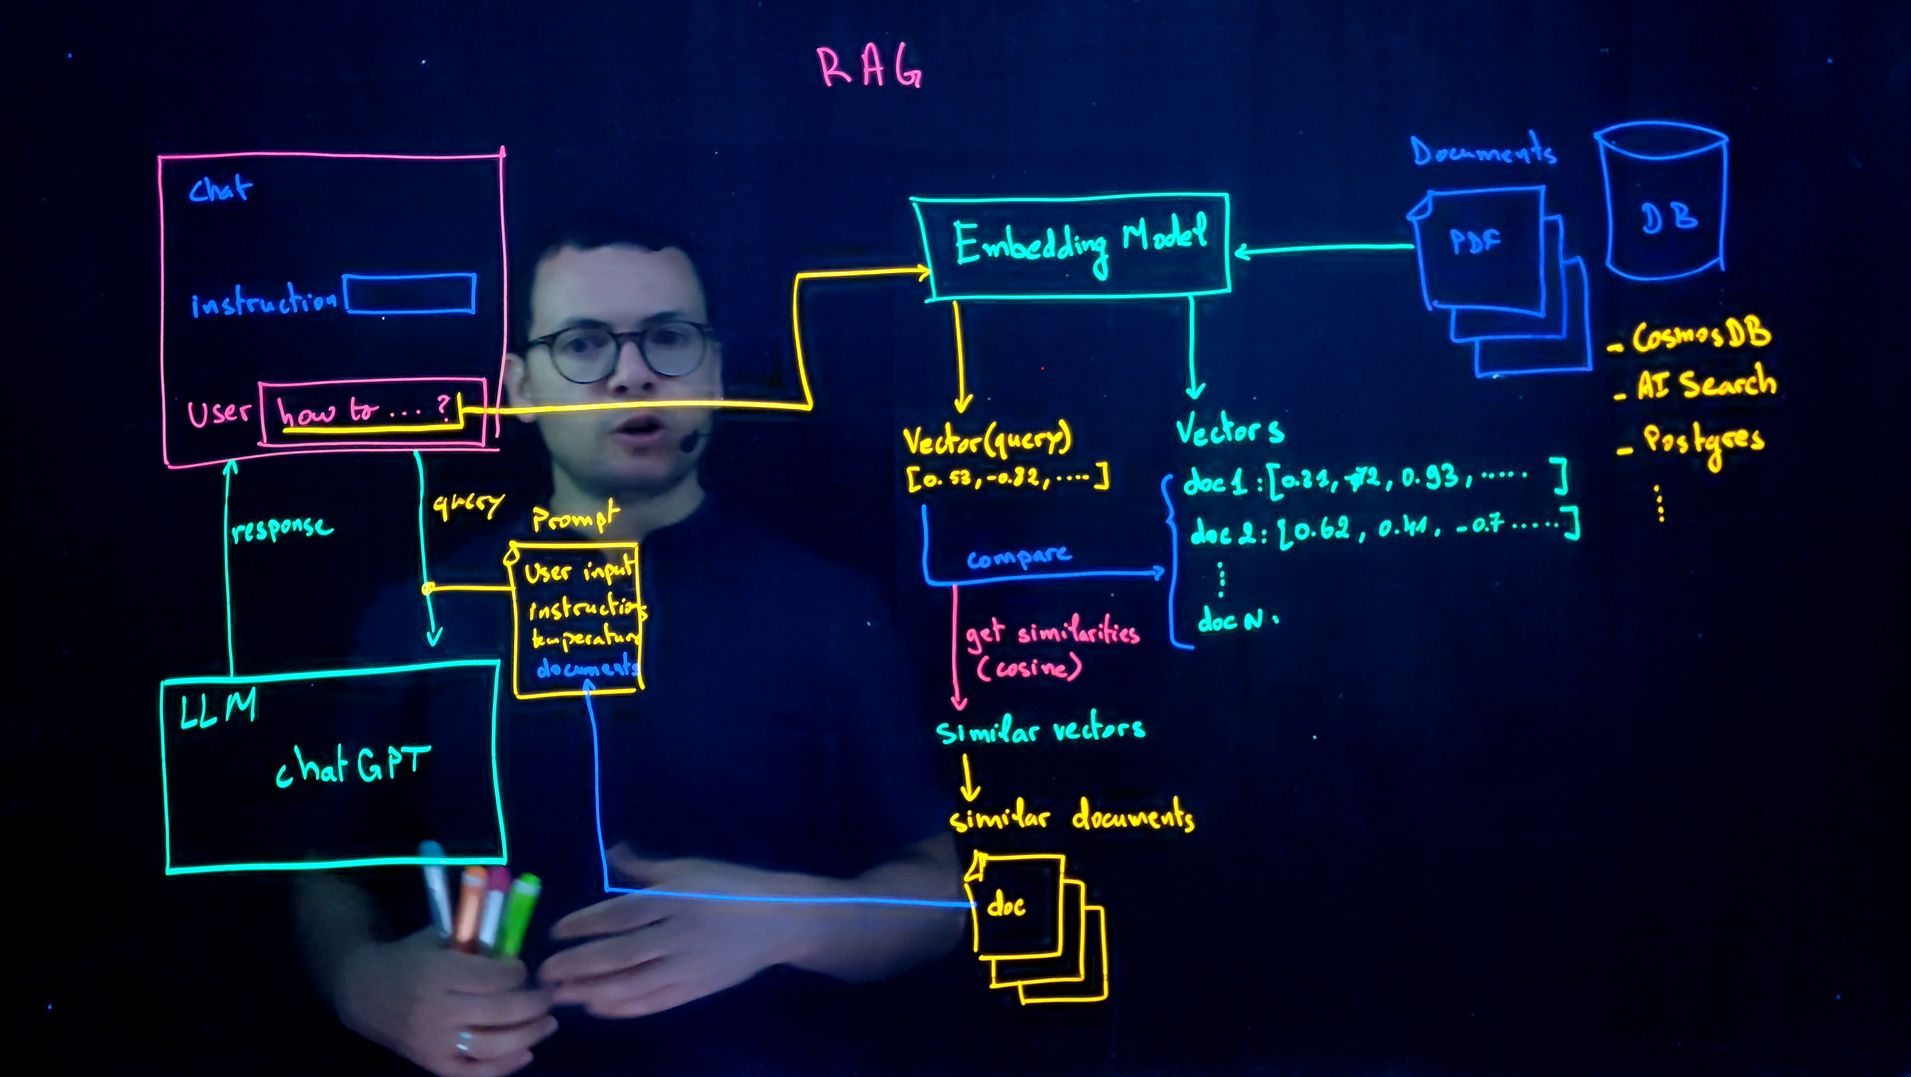 RAG
chat
instruction
User how to ... ?
response
query
Prompt
User input
instructions
temperature
documents
LLM
chatGPT
Embedding Model
Documents
PDF
DB
- CosmosDB
- AI Search
- Postgres
Vector(query)
[0.53, -0.82, ....]
Vectors
doc 1 : [0.31, , 0.93, ..... ]
doc 2 : [0.62, 0.41, -0.7 .....]
doc N.
compare
get similarities
(cosine)
similar vectors
similar documents
doc